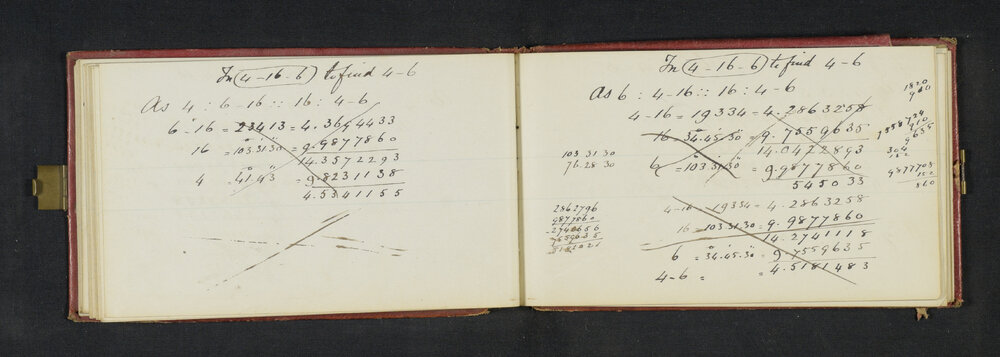 In (4-16-6) to find 4-6
As 4 : 6-16 :: 16 : 4-6
6-16 = 23413 = 4.3694433
16 = 103.31.30 = 9.9877860
14.3572293
4 = 41.43 = 9.8231138
4.5341155
In (4-16-6) to find 4-6
As 6 : 4-16 :: 16 : 4-6
4-16 = 19334 = 4.2863258
16 = 34.45.30 = 9.7559635
14.0422893
6 = 103.31.30 = 9.9877860
545033
4-16 19334 = 4.2863258
16 = 103.31.30 = 9.9877860
14.2741118
6 = 34.45.30 = 9.7559635
4-6 = = 4.5181483
103 31.30
76.28 30
2862796
9877860
2740656
7559635
5181021
1820
960
910
9635
304
152
9877708
152
860